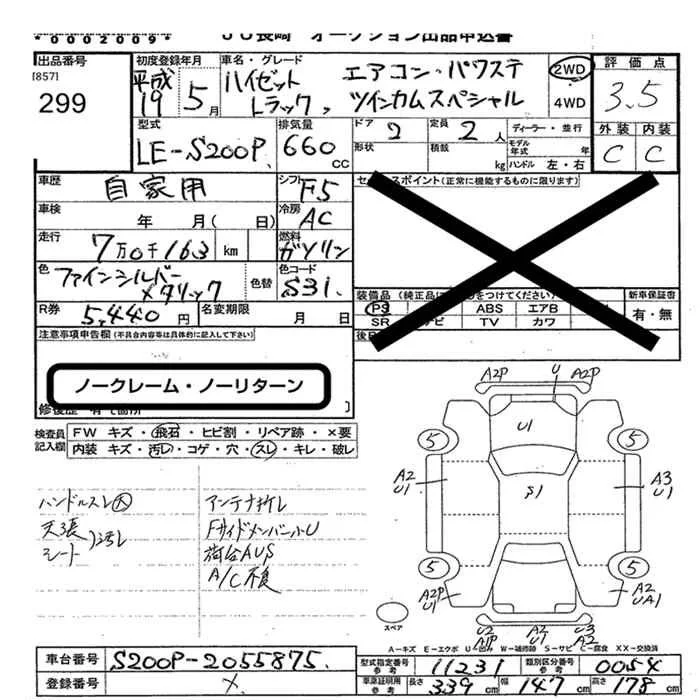 *0002009*
JU長崎 オークション出品申込書
出品番号
[857]
299
初度登録年月
平成 19年 5月
車名・グレード
ハイゼット エアコン・パワステ
トラック, ツインカムスペシャル
2WD
4WD
評価点
3.5
外装 内装
C C
型式
LE-S200P.
排気量
660 CC
ドア 2
定員 2人
ディーラー・並行
形状
積載 kg
モデル年式 年
ハンドル 左・右
車歴 自家用
シフト F5
セールスポイント(正常に機能するものに限ります)
車検 年 月( 日)
冷房 AC
走行 7万0千163 km
燃料 ガソリン
色 ファインシルバーメタリック
色替
色コード S31.
装備品 (純正品に
をつけてください)
新車保証書
有・無
PS ABS エアB
SR ナビ TV カワ
R券 5,440円
名変期限 月 日
注意事項申告欄(不具合内容等は具体的に記入して下さい)
ノークレーム・ノーリターン
修復歴 有
検査員記入欄
FW キズ・飛石・ヒビ割・リペア跡・×要
内装 キズ・汚レ・コゲ・穴・スレ・キレ・破レ
ハンドルスレ大
天張
シート
汚レ
アンテナ折レ
FサイドメンバーハU
荷台AUS
A/C不良
A2P U A2P
U1
S1
5 5
A2
U1
A3
U1
5 5
A2P
U1
A2
UA1
U2
A1P
A2
U1
U3
A2
スペア
A-キズ E-エクボ U-凹み W-補修跡 S-サビ C-腐食 XX-交換済
車台番号 S200P-2055875.
登録番号 ×
型式指定番号 参考 11231
類別区分番号 参考 0054
車庫証明用 参考 長さ 339 cm 幅 147 cm 高さ 178 cm